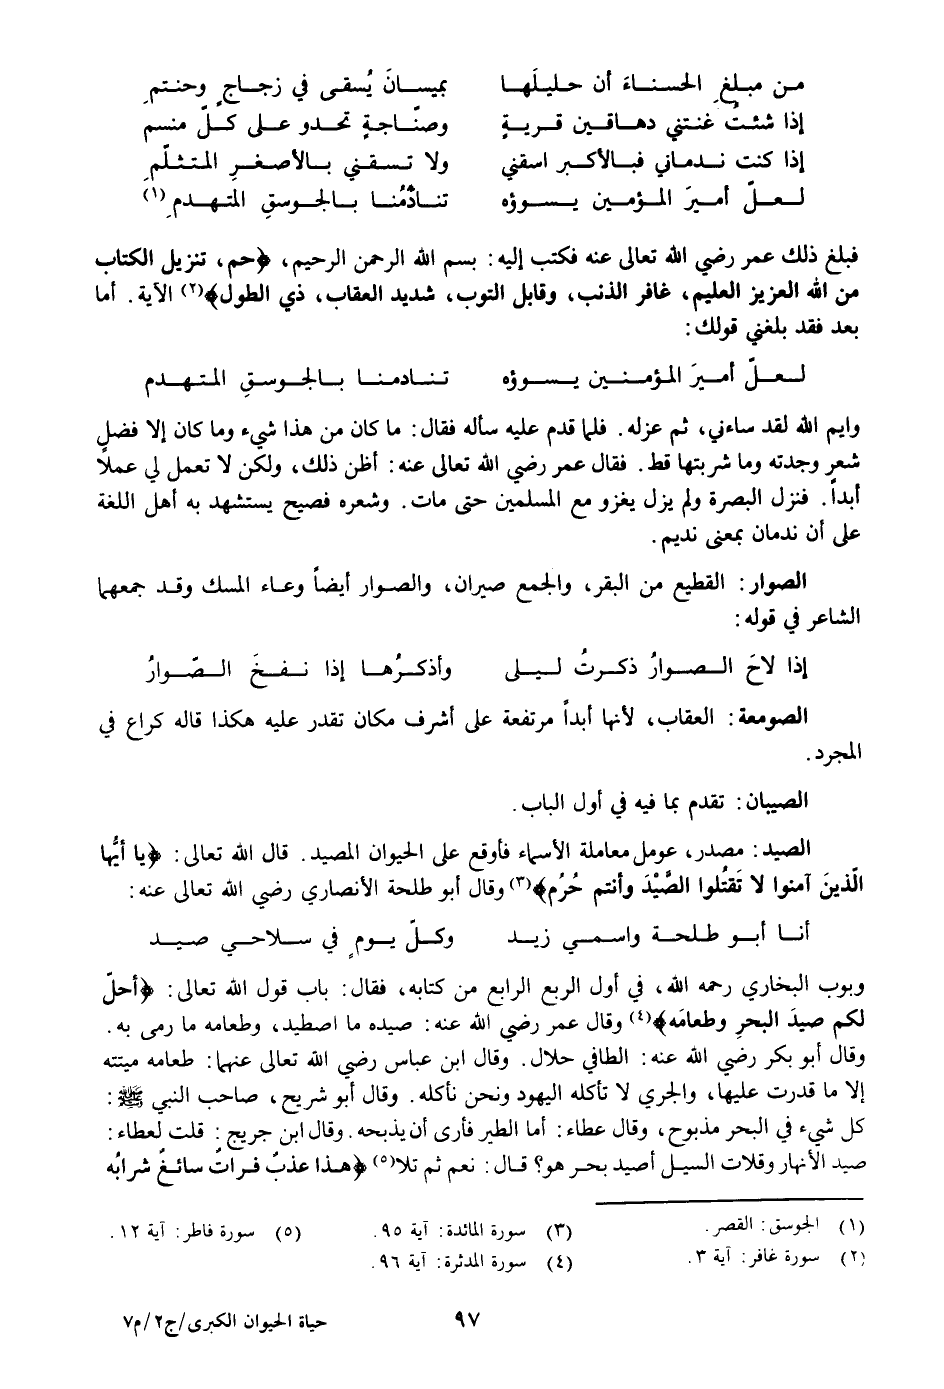 من مبلغ الحسناءَ أن حليلَها بميسانَ يُسقى في زجاجٍ وحنتمِ
إذا شئتُ غنتني دهاقين قريةٍ وصنّاجةٍ تحدو على كلّ منسم
إذا كنت ندماني فبالأكبر اسقني ولا تسقني بالأصغرِ المتثلّمِ
لعلّ أميرَ المؤمنين يسوؤه تنادُمُنا بالجوسقِ المتهدمِ(١)
فبلغ ذلك عمر رضي الله تعالى عنه فكتب إليه: بسم الله الرحمن الرحيم، ﴿حم، تنزيل الكتاب
من الله العزيز العليم، غافر الذنب، وقابل التوب، شديد العقاب، ذي الطول﴾(٢) الآية. أما
بعد فقد بلغني قولك:
لعلّ أميرَ المؤمنين يسوؤه تنادمنا بالجوسقِ المتهدم
وايم الله لقد ساءني، ثم عزله. فلما قدم عليه سأله فقال: ما كان من هذا شيء وما كان إلا فضل
شعر وجدته وما شربتها قط. فقال عمر رضي الله تعالى عنه: أظن ذلك، ولكن لا تعمل لي عملاً
أبداً. فنزل البصرة ولم يزل يغزو مع المسلمين حتى مات. وشعره فصيح يستشهد به أهل اللغة
على أن ندمان بمعنى نديم.
الصوار: القطيع من البقر، والجمع صيران، والصوار أيضاً وعاء المسك وقد جمعهما
الشاعر في قوله:
إذا لاحَ الصوارُ ذكرتُ ليلى وأذكرُها إذا نفخَ الصّوارُ
الصومعة: العقاب، لأنها أبداً مرتفعة على أشرف مكان تقدر عليه هكذا قاله كراع في
المجرد.
الصيبان: تقدم بما فيه في أول الباب.
الصيد: مصدر، عومل معاملة الأسماء فأوقع على الحيوان المصيد. قال الله تعالى: ﴿يا أيُّها
الّذينَ آمنوا لا تَقتُلوا الصَّيْدَ وأنتم حُرُم﴾(٣) وقال أبو طلحة الأنصاري رضي الله تعالى عنه:
أنا أبو طلحة واسمي زيد وكلّ يومٍ في سلاحي صيد
وبوب البخاري رحمه الله، في أول الربع الرابع من كتابه، فقال: باب قول الله تعالى: ﴿أحلّ
لكم صيدَ البحرِ وطعامَه﴾(٤) وقال عمر رضي الله عنه: صيده ما اصطيد، وطعامه ما رمى به.
وقال أبو بكر رضي الله عنه: الطافي حلال. وقال ابن عباس رضي الله تعالى عنهما: طعامه ميتته
إلا ما قدرت عليها، والجري لا تأكله اليهود ونحن نأكله. وقال أبو شريح، صاحب النبي ﷺ:
كل شيء في البحر مذبوح، وقال عطاء: أما الطير فأرى أن يذبحه. وقال ابن جريج: قلت لعطاء:
صيد الأنهار وقلات السيل أصيد بحر هو؟ قال: نعم ثم تلا(٥) ﴿هذا عذبٌ فراتٌ سائغٌ شرابُه
(١) الجوسق: القصر. (٣) سورة المائدة: آية ٩٥. (٥) سورة فاطر: آية ١٢.
(٢) سورة غافر: آية ٣. (٤) سورة المدثرة: آية ٩٦.
٩٧ حياة الحيوان الكبرى/ج٢/م٧